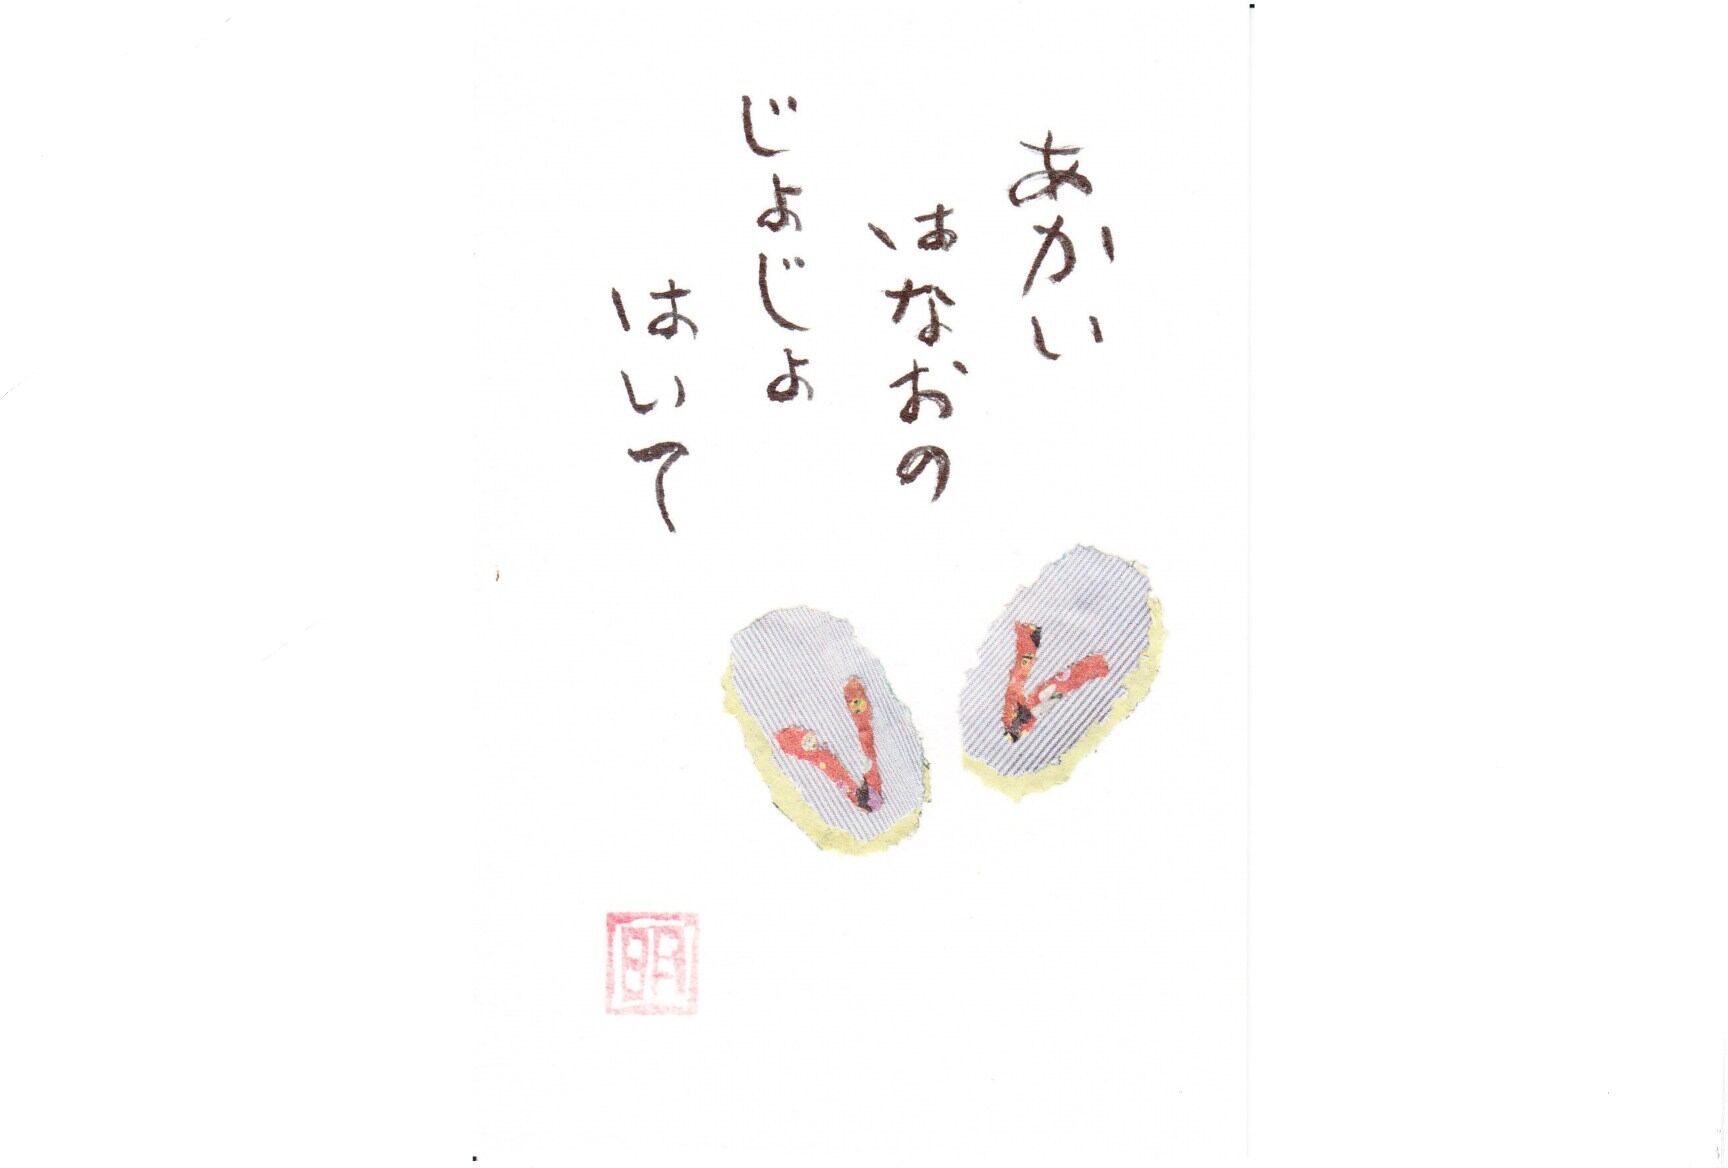 あかい
はなおの
じょじょ
はいて
明